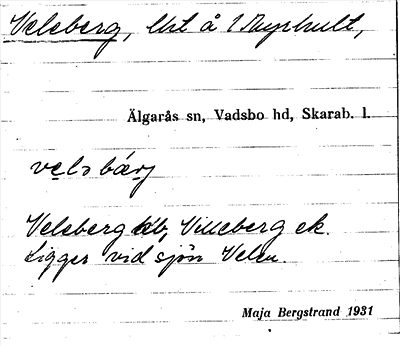 Veleberg, lht å 1 Myrhult,
Älgarås sn, Vadsbo hd, Skarab. l.
velǝ bárj
Veleberg kb, Villeberg ek.
Ligger vid sjön Velen.
Maja Bergstrand 1931